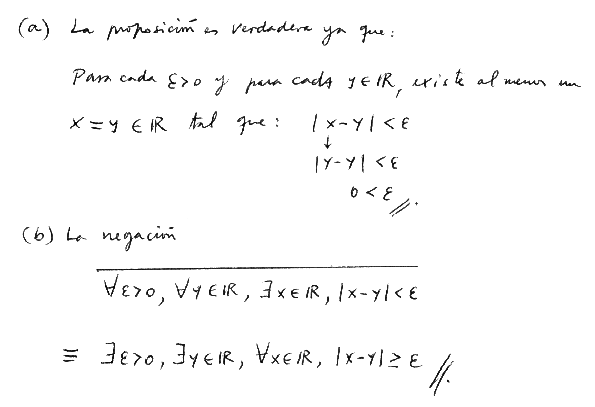 (a) La proposición es verdadera ya que:
Para cada ε>0 y para cada y∈ℝ, existe al menos un
x=y ∈ ℝ tal que: |x-y|<ε
↓
|y-y|<ε
0<ε //.
(b) La negación
∀ε>0, ∀y∈ℝ, ∃x∈ℝ, |x-y|<ε
≡ ∃ε>0, ∃y∈ℝ, ∀x∈ℝ, |x-y|≥ε //.